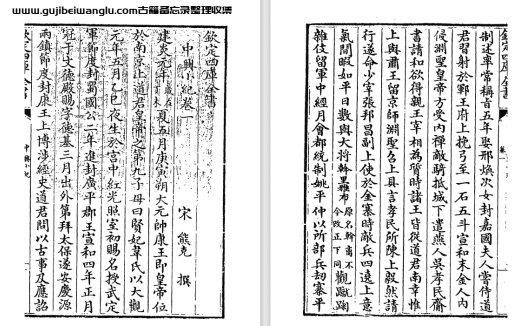 www.gujibeiwanglu.com古籍备忘录整理收集
欽定四庫全書
中興小紀卷一
宋 熊克 撰
建炎元年夏五月庚寅朔大元帥康王即皇帝位
于南京上道君皇帝之第九子母曰賢妃韋氏以大觀
元年五月乙巳夜生於宮中紅光照室初賜名授武定
軍節度封蜀國公二年進封廣平郡王宣和四年正月
冠于文德殿賜字德基三月出外第拜太保遂安慶源
兩鎮節度封康王上博涉經史道君問以古事及應詔
欽定四庫全書
中興小紀
制述率常稱旨五年娶邢煥次女封嘉國夫人嘗侍道
君習射於鄆王府上挽弓至一石五斗宣和末金人內
侵淵聖皇帝方受內禪敵騎抵城下遣燕人吳孝民齎
書請和欲得親王宰相為質時諸王皆從道君南幸惟
上與肅王留京師淵聖召上具言孝民所陳上毅然請
行遂命少宰張邦昌副上使於金寨時敵兵四遶上意
氣閒暇如平日數與大將斡里雅布原名斡离不今改正下同觀蹴踘
雜伎留軍中經月會都統制姚平仲以所部兵劫寨平